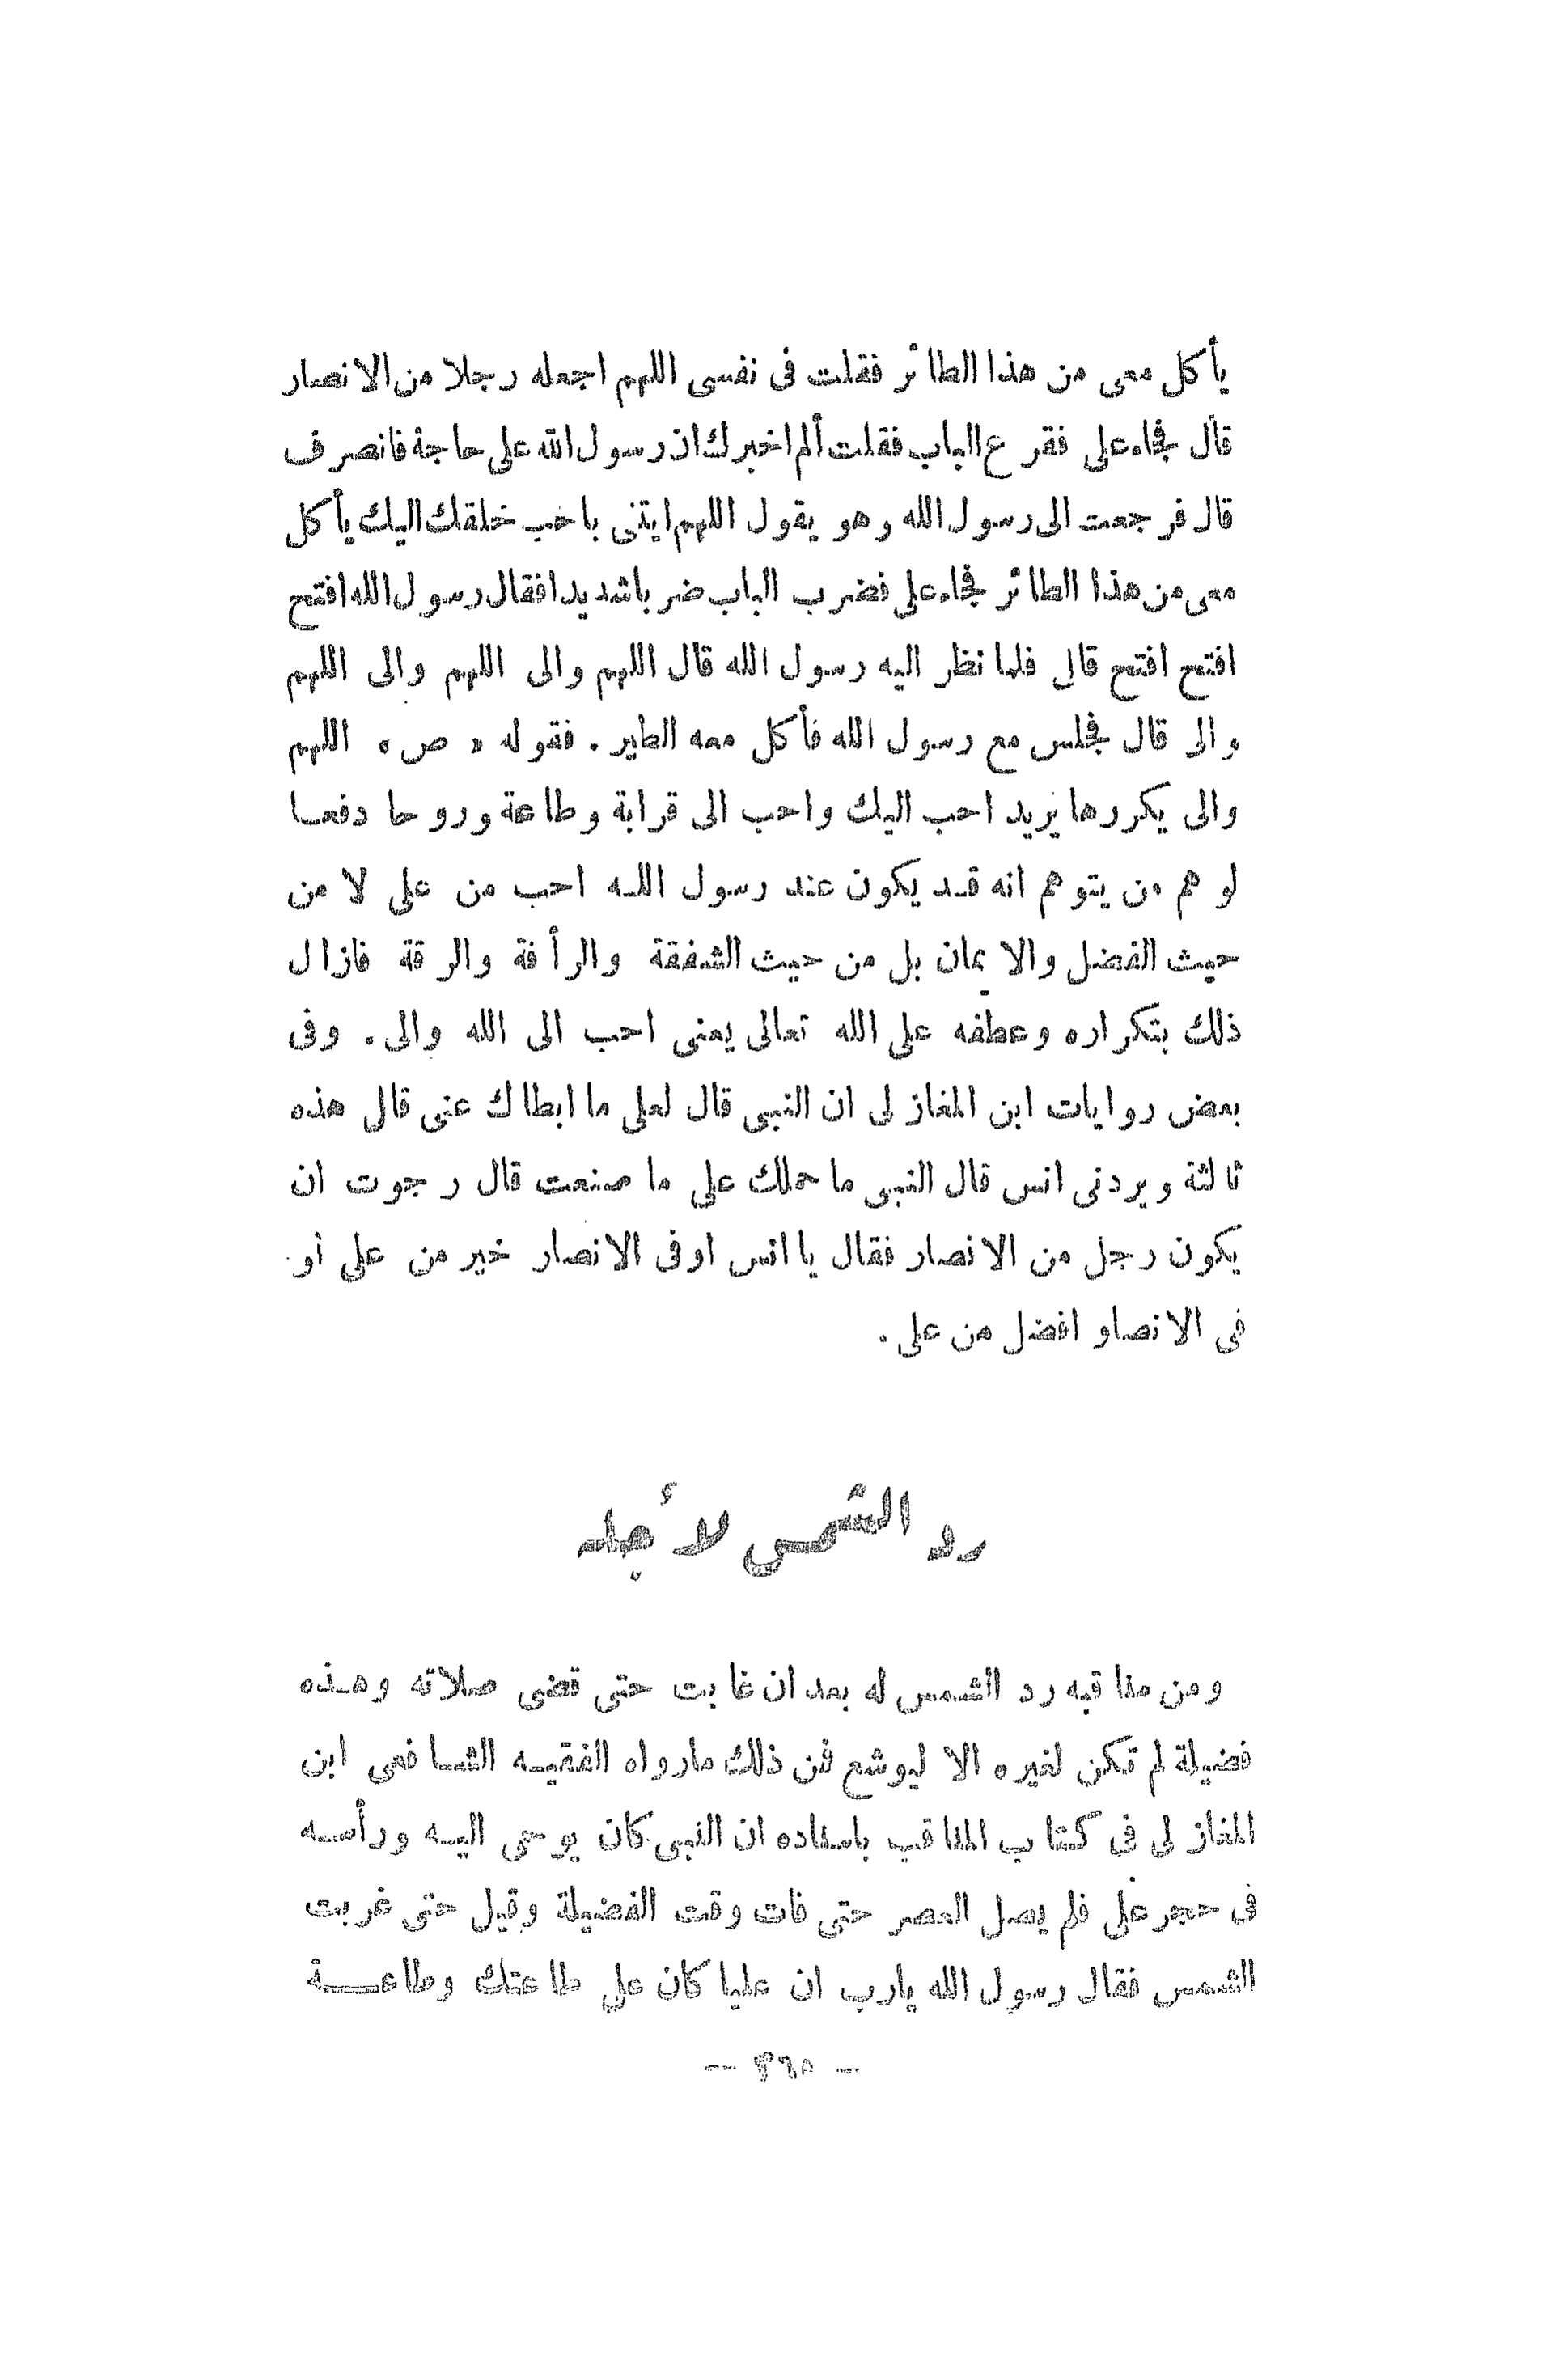 يأكل معى من هذا الطائر فقلت فى نفسى اللهم اجعله رجلا من الانصار
قال فجاء على فقرع الباب فقلت ألم اخبرك ان رسول الله على حاجة فانصرف
قال فرجعت الى رسول الله وهو يقول اللهم ايتنى باحب خلقك اليك يأكل
معى من هذا الطائر فجاء على فضرب الباب ضربا شديدا فقال رسول الله افتح
افتح افتح قال فلما نظر اليه رسول الله قال اللهم والى اللهم والى اللهم
والى قال فجلس مع رسول الله فأكل معه الطير . فقوله « ص » اللهم
والى يكررها يريد احب اليك واحب الى قرابة وطاعة وروحا دفعا
لوهم من يتوهم انه قد يكون عند رسول الله احب من على لا من
حيث الفضل والايمان بل من حيث الشفقة والرأفة والرقة فازال
ذلك بتكراره وعطفه على الله تعالى يعنى احب الى الله والى . وفى
بعض روايات ابن المغازلى ان النبى قال لعلى ما ابطاك عنى قال هذه
ثالثة ويردنى انس قال النبى ما حملك على ما صنعت قال رجوت ان
يكون رجل من الانصار فقال يا انس اوفى الانصار خير من على أو
فى الانصاو افضل من على .
رد الشمس لأجله
ومن مناقبه رد الشمس له بعد ان غابت حتى قضى صلاته وهذه
فضيلة لم تكن لغيره الا ليوشع فمن ذلك مارواه الفقيه الشافعى ابن
المغازلى فى كتاب المناقب باسناده ان النبى كان يوحى اليه ورأسه
فى حجر على فلم يصل العصر حتى فات وقت الفضيلة وقيل حتى غربت
الشمس فقال رسول الله يارب ان عليا كان على طاعتك وطاعة
— ٣٦٥ —